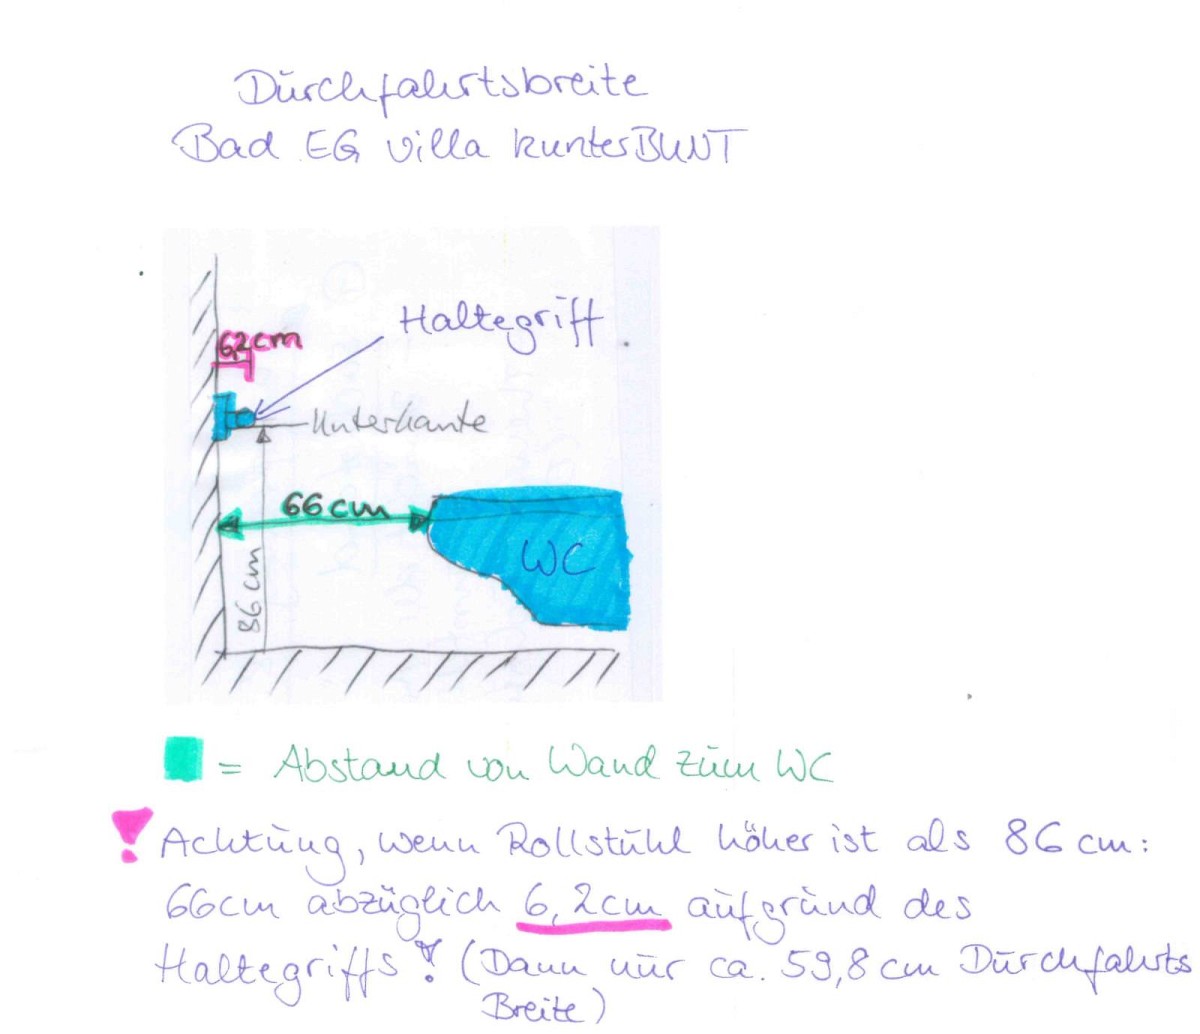 Durchfahrtsbreite
Bad EG villa kunterBUNT
6,2cm
Haltegriff
Unterkante
66cm
86cm
WC
= Abstand von Wand zum WC
! Achtung, wenn Rollstuhl höher ist als 86cm:
66cm abzüglich 6,2cm aufgrund des
Haltegriffs! (Dann nur ca. 59,8cm Durchfahrts
Breite)